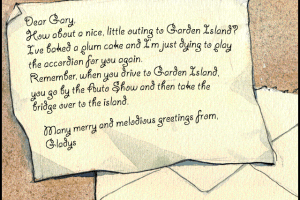 Dear Gary,
How about a nice, little outing to Garden Island?
I've baked a plum cake and I'm just dying to play
the accordian for you again.
Remember, when you drive to Garden Island,
you go by the Auto Show and then take the
bridge over to the island.
Many merry and melodious greetings from,
Gladys